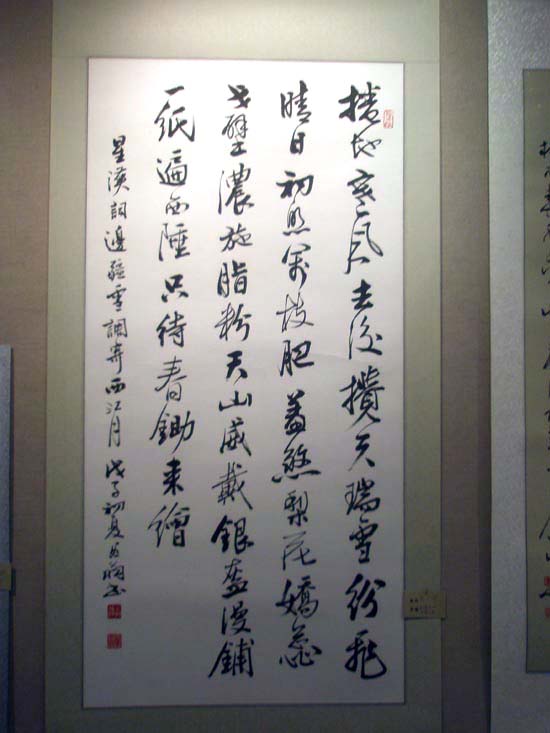 捲地寒風去後攪天瑞雪紛飛
晴日初照萬枝肥羞煞梨花嬌蕊
戈壁濃施脂粉天山威戴銀盔漫鋪
一紙遍西陲只待春鋤來繪
星漢詞邊疆雪調寄西江月 戊子初夏書